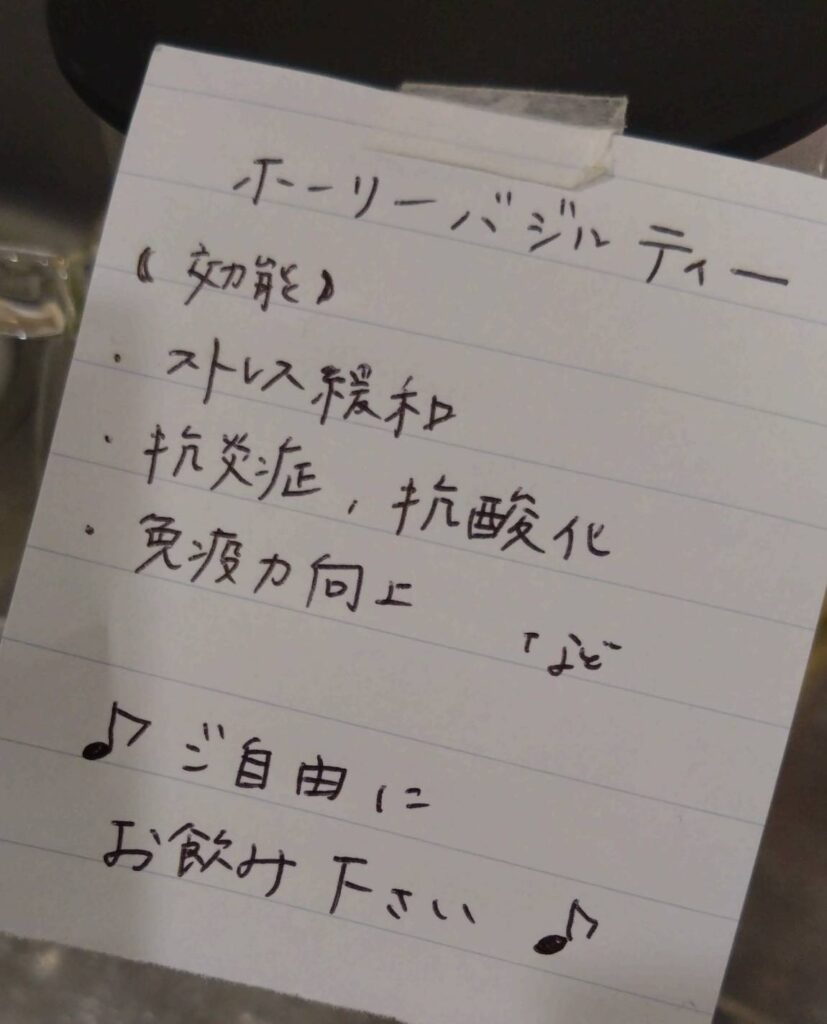 ホーリーバジルティー
《効能》
・ストレス緩和
・抗炎症、抗酸化
・免疫力向上
など
♪ご自由に
お飲み下さい♪